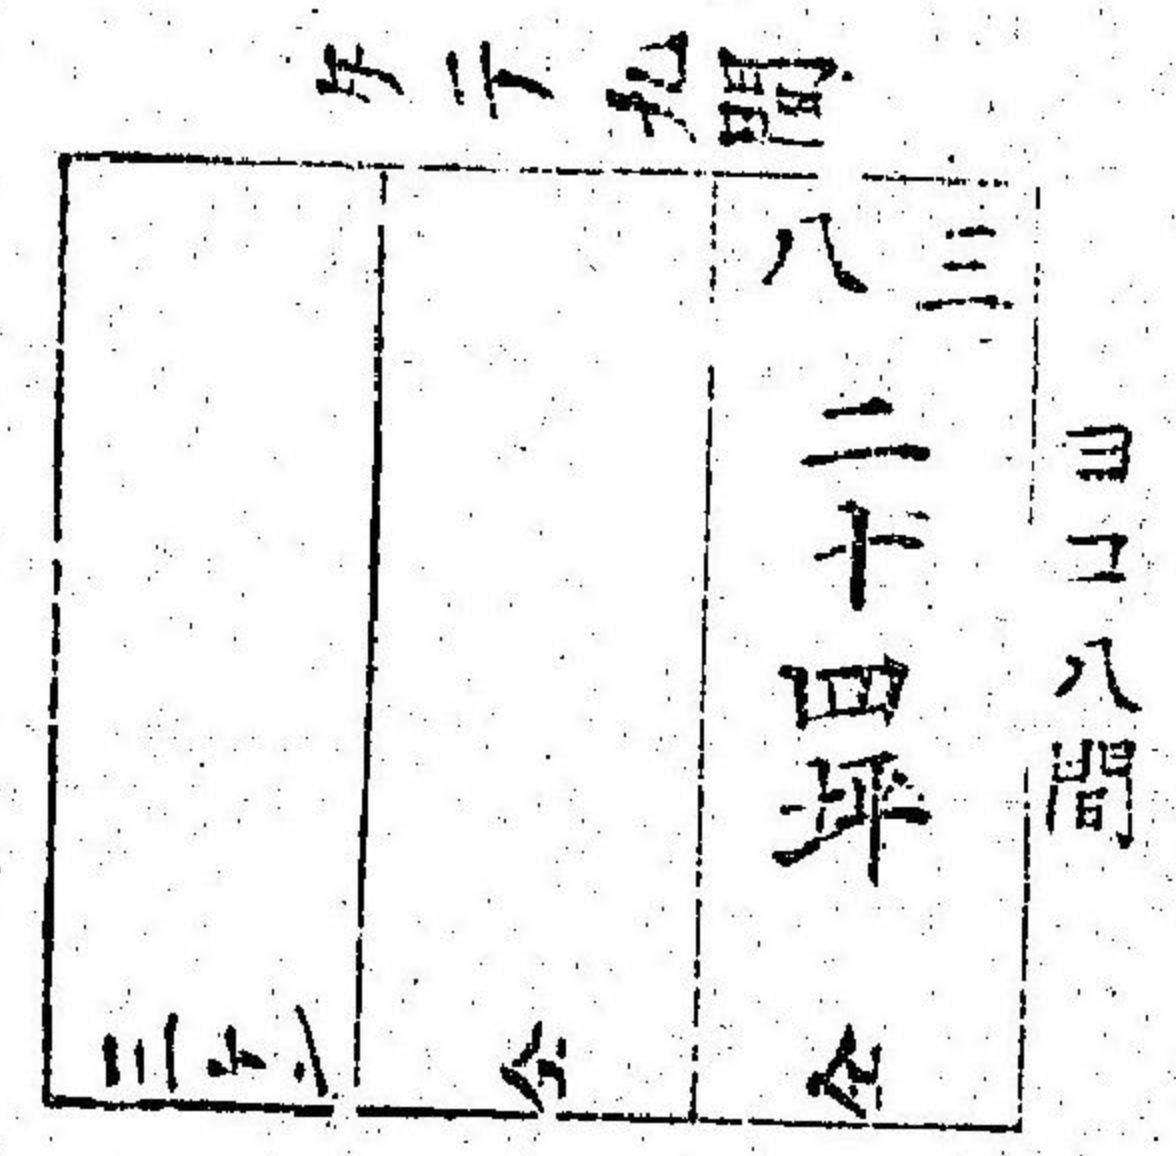 タテ九間
ヨコ八間
三
八
二十四坪
仝
仝